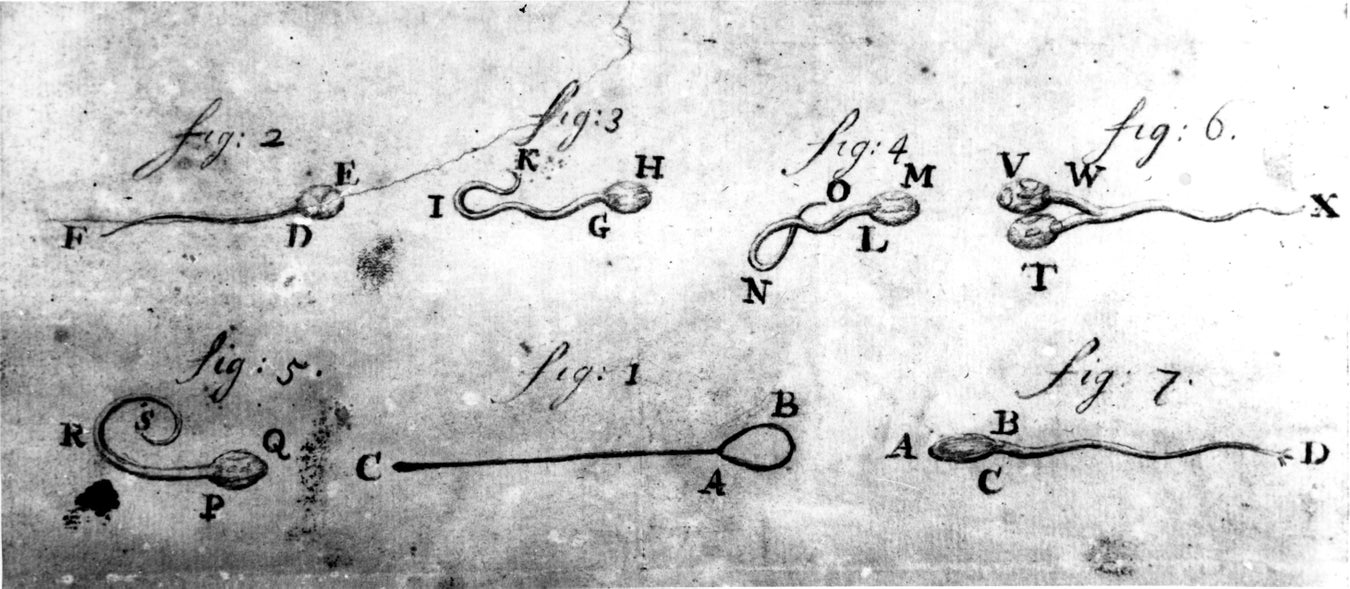 fig: 2
fig: 3
fig: 4
fig: 6.
E
K
H
O
M
V
W
F
D
I
G
N
L
T
X
fig: 5.
fig: 1
fig: 7.
R
S
Q
P
C
A
B
A
B
C
D